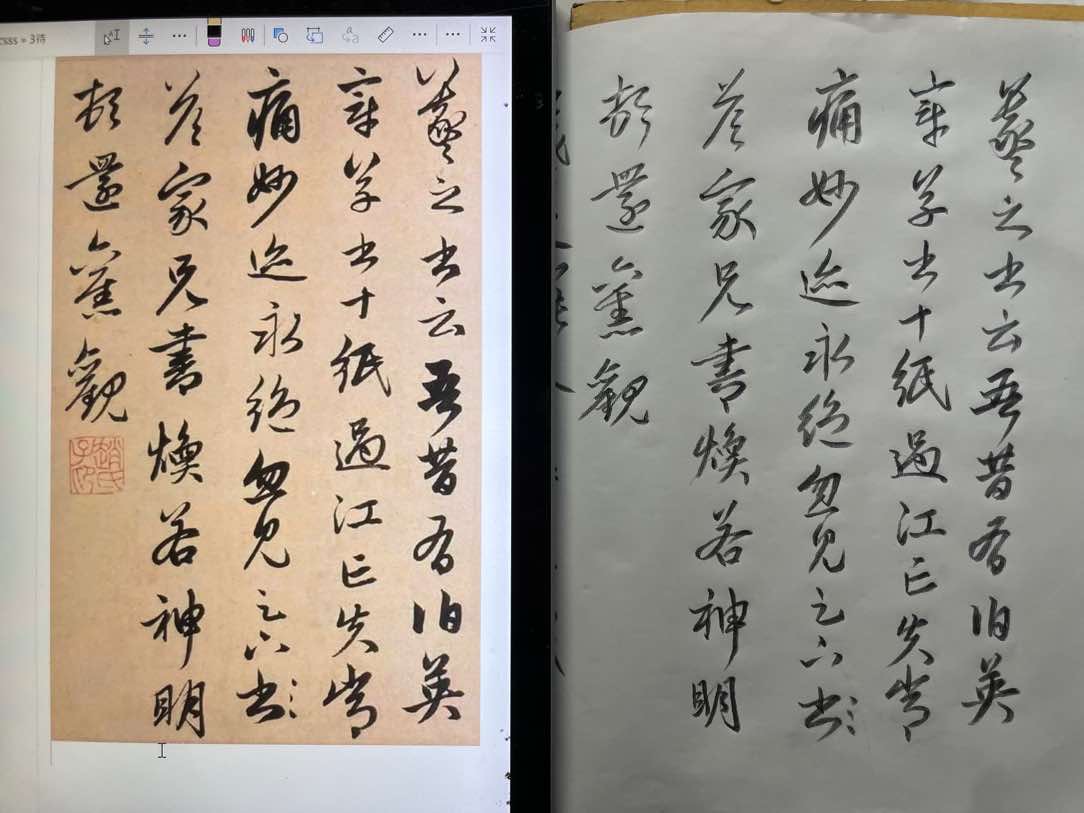 csss » 3待
羲之書云吾昔有伯英
章草書十紙過江亡失常
痛妙迹永絕忽見足下書
答家兄書煥若神明
頓還舊觀
趙氏子昂
羲之書云吾昔有伯英
章草書十紙過江亡失常
痛妙迹永絕忽見足下書
答家兄書煥若神明
頓還舊觀